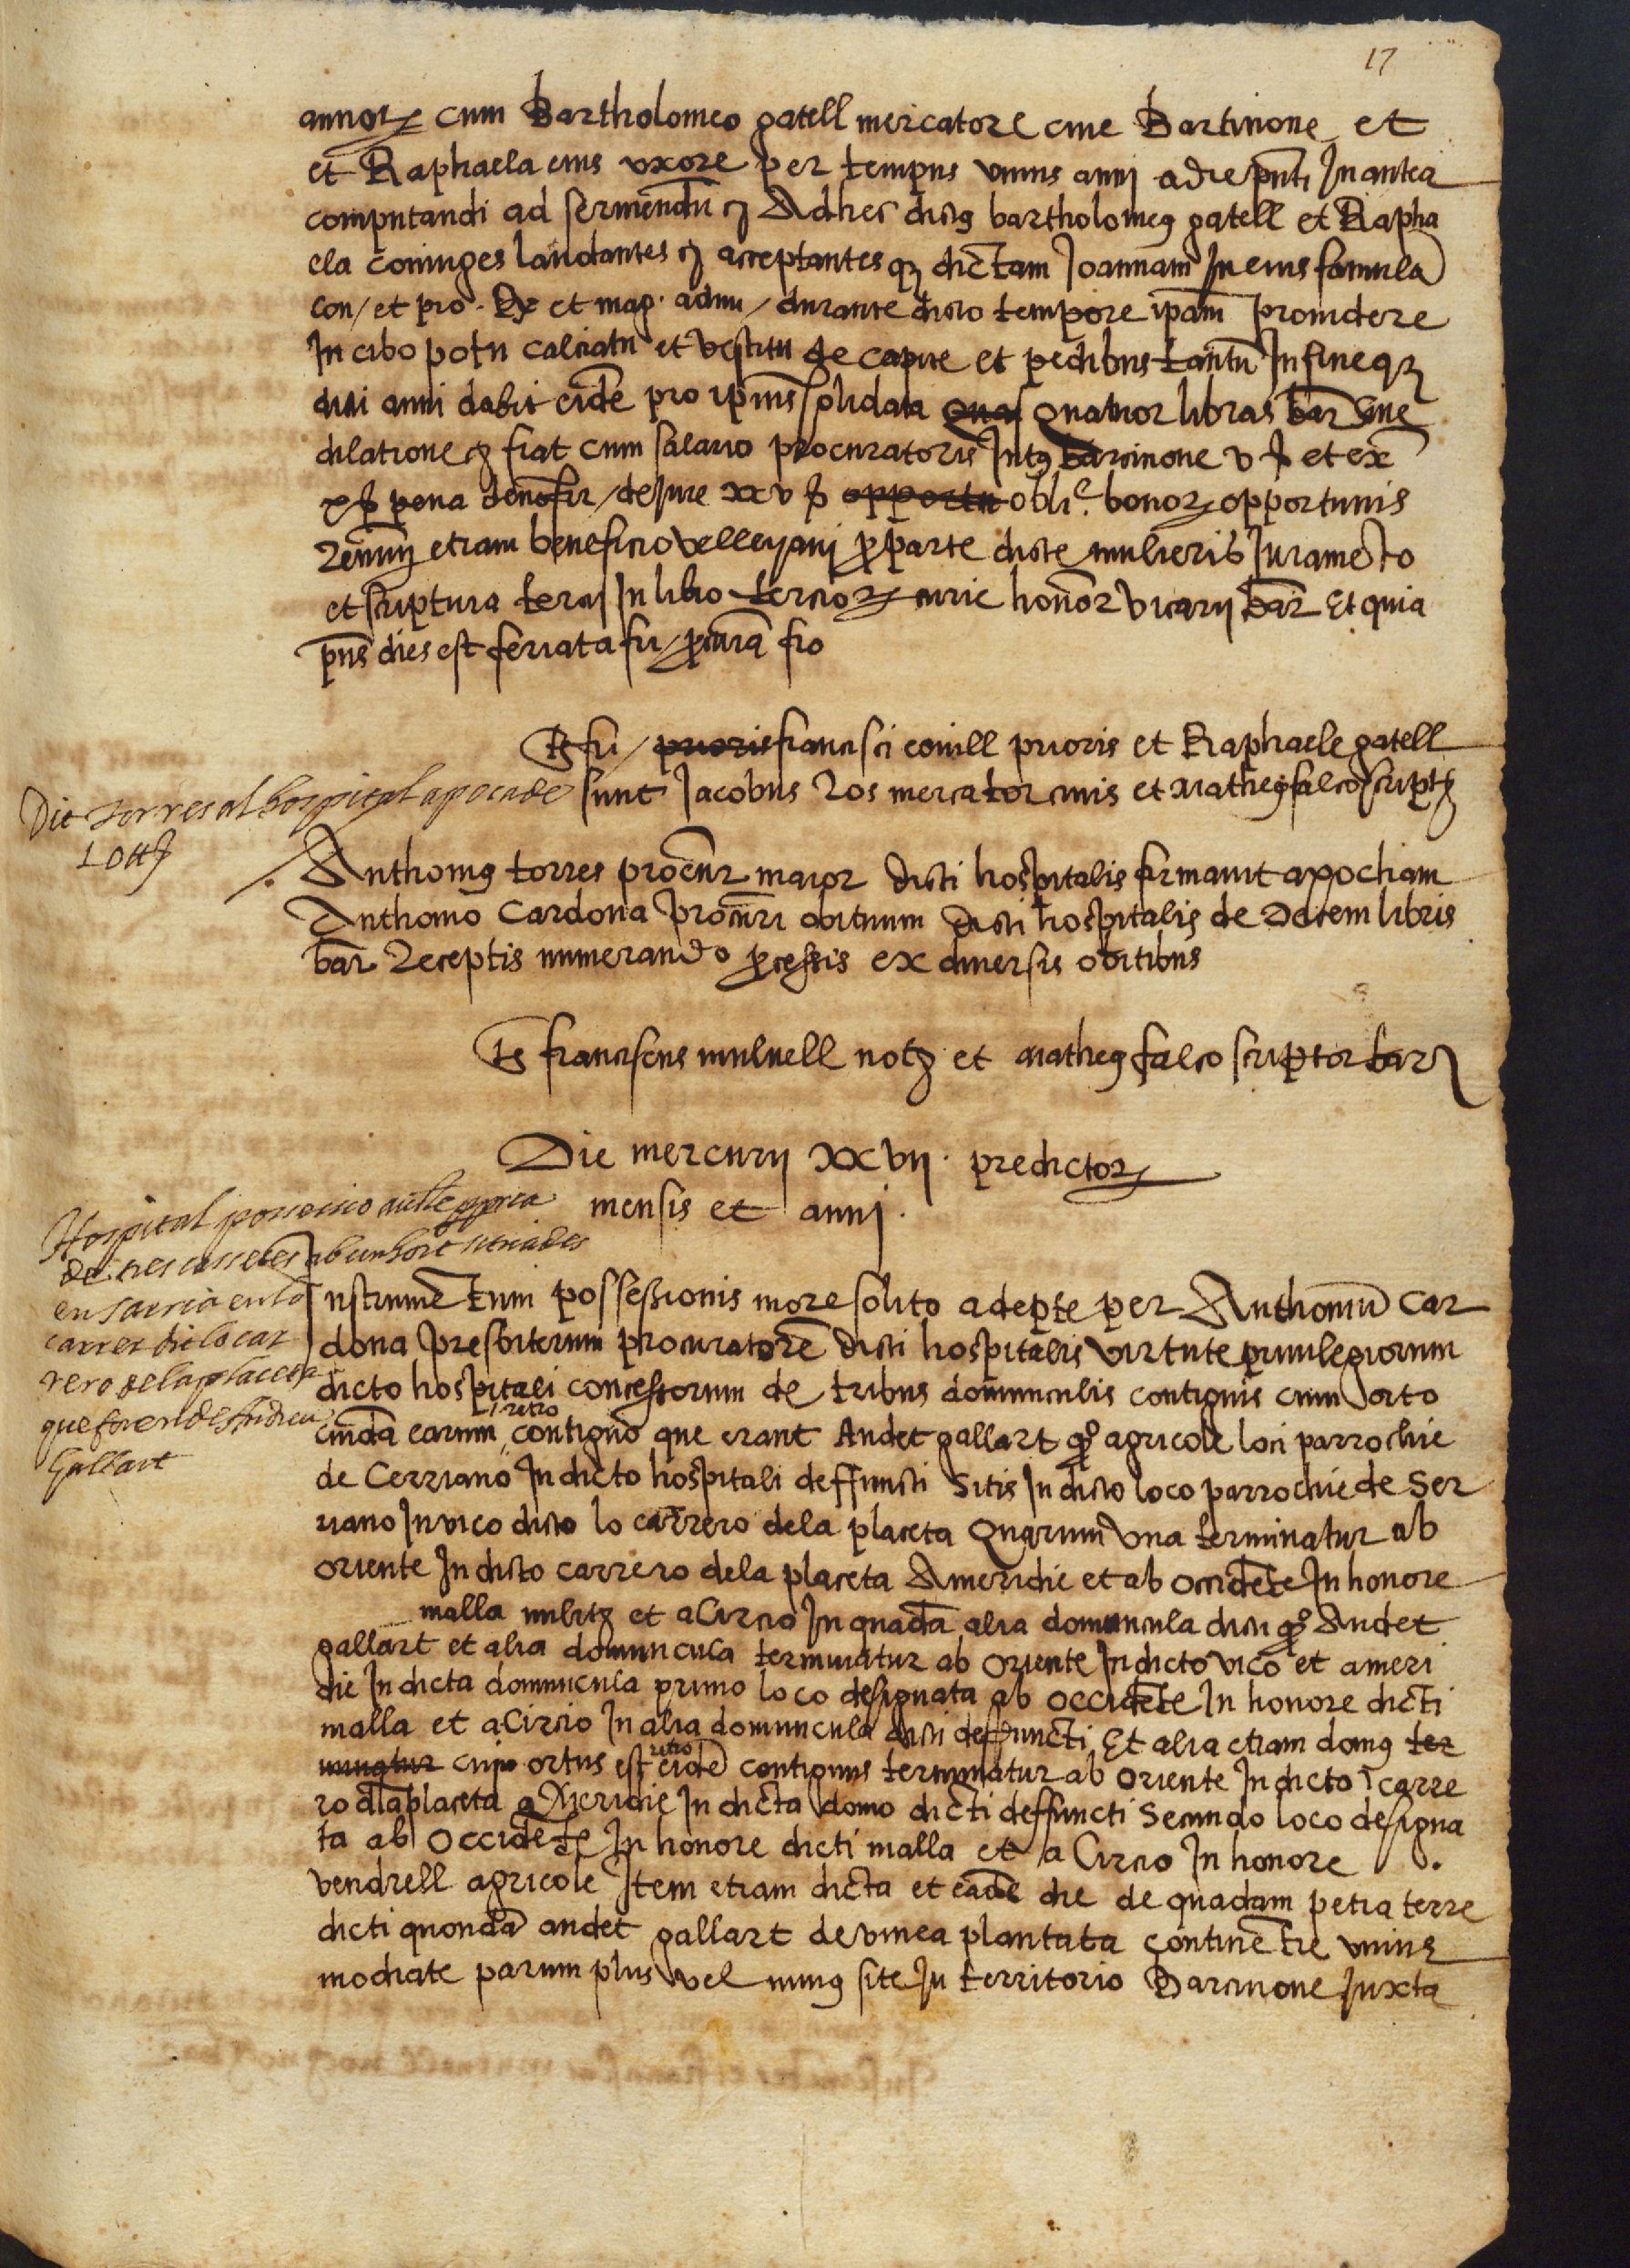 17
annoꝝ cum Bartholomeo gatell mercatore ciue Barcinone et
et Raphaela eius vxore per tempus vnius anni a die pnti In antea
computandi ad seruiendu ꝯ Ad hec dictꝰ bartholomeꝰ gatell et Rapha
ela coniuges laudantes ꝯ acceptantes qȝ dictam Joannam In eius famula
con / et pro. Ex et mag. admi / durante dicto tempore ipam prouidere
In cibo potu calciatu et vestitu de capite et pedibus tantu In fineqȝ
dicti anni dabit eide pro ipius solidata qua quatuor libras bar sine
dilatione ꝯ fiat cum salario procuratoris Intꝰ barcinone v ß et ex
x ß pena de non fir / de Jure xxv ß opportu obli.e bonoꝝ opportunis
etiam beneficio velleyani ꝑ parte dicte mulieris Juramento
et scriptura tercij In libro tercioꝝ curie honor vicarij bar Et quia
pns dies est feriata fu / fio
Ts fu / prioris francisci conill prioris et Raphaele gatell
sunt Jacobus Ros mercator ciuis et Matheꝰ falco scriptꝫ
Die torres al hospital apoca de
10 ħ
Anthoniꝰ torres procur maior dicti hospitalis firmauit apocham
Anthonio Cardona procuri obituum dicti hospitalis de Decem libris
bar Receptis numerando ꝓcessis ex diuersis obitibus
Ts franciscus mulnell notꝫ et Matheꝰ falco scriptor bar
Die mercurij xxvij. predictoꝝ
mensis et anni.
Hospital possessio
de tres cassetes ab un hort sitiades
en sarria en lo
carrer dit lo car
rero de la placeta
que foren de Andreu
Gallart
Instrumetum possessionis more solito adepte per Anthoniu Car
dona presbiterum procuratore dicti hospitalis virtute priuilegiorum
dicto hospitali concessorum de tribus domunculis contiguis cum orto
cuida earum retro contiguo que erant Andet gallart qº agricole loci parrochie
de Cerriano In dicto hospitali deffuncti Sitis In dicto loco parrochie de Ser
riano In vico dicto lo carrero dela placeta Quarum vna terminatur ab
oriente In dicto carrero dela placeta A meridie et ab occidete In honore
malla militꝫ et a Circio In quada alia domuncula dicti qº Andet
gallart et alia domuncula terminatur ab Oriente In dicto vico et a meri
die In dicta domuncula primo loco designata ab occidete In honore dicti
malla et a Circio In alia domuncula dicti deffuncti Et alia etiam domꝰ ter
minatur cuiꝰ ortus est retro eide contiguus terminatur ab Oriente In dicto carre
ro dla placeta a Meridie In dicta domo dicti deffuncti Secundo loco designa
ta ab Occidete In honore dicti malla et a Circio In honore .
vendrell agricole Item etiam dicta et eade die de quadam petia terre
dicti quonda andet gallart de vinea plantata continetie vnius
modiate parum plus vel minꝰ site In territorio Barcinone Juxta